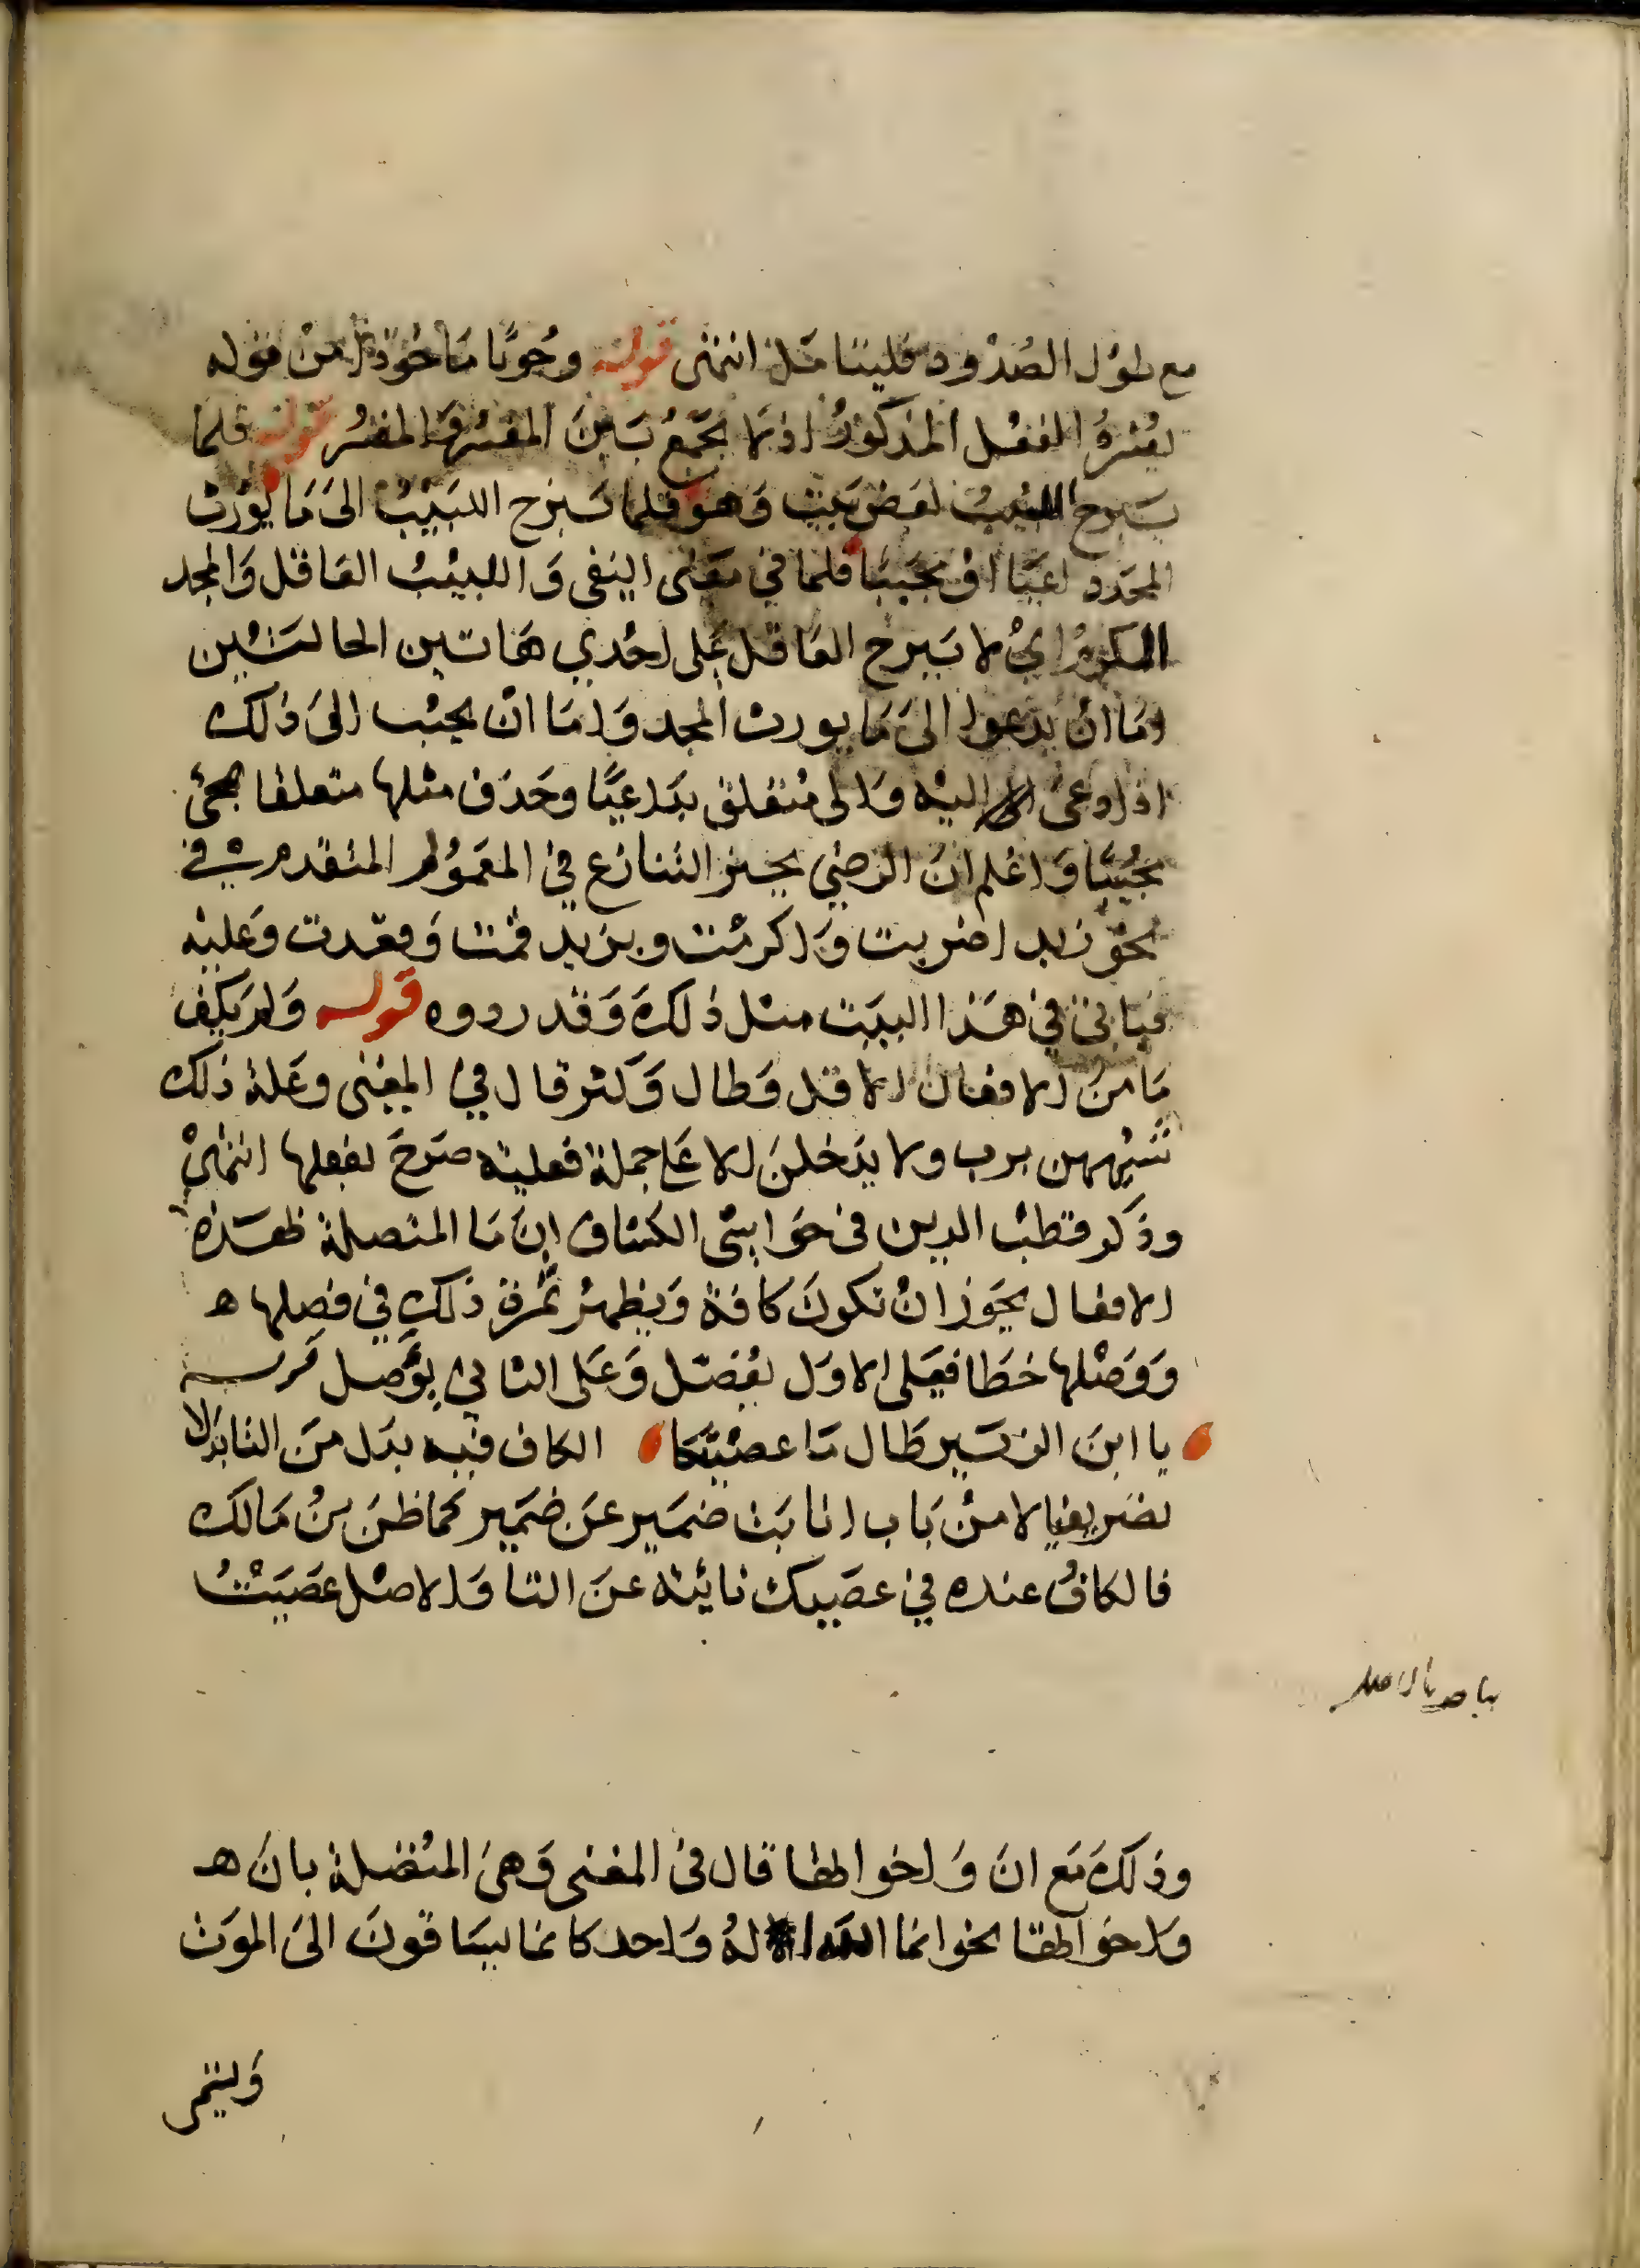 مع طول الصدود فليتامل انتهى قوله وجوبا ماخوذ من قوله
يفسره الفعل المذكور اذ لا يجمع بين المفسر والمفسر قوله قلما
يبرح اللبيب بعض بيت وهو قلما يبرح اللبيب الى ما يورث
المجد داعيا او مجيبا فقلما في معنى النفي واللبيب العاقل والمجد
الكرم اي لا يبرح العاقل على احدي هاتين الحالتين
اما ان يدعوا الى ما يورث المجد واما ان يجيب الى ذلك
اذا دعى اليه والى متعلق بداعيا وحذف مثلها متعلقا
مجيبا واعلم ان الرضي يجيز التنازع في المعمول المتقدم في
نحو زيد اضربت واكرمت وبزيد قمت وقعدت وعليه
فياتى في هذا البيت مثل ذلك وقد ردوه قوله ولم يكف
ما من الافعال الا قل وطال وكثر قال في المغنى وعلة ذلك
شبههن برب ولا يدخلن الا على جملة فعلية صرح بفعلها انتهى
وذكر قطب الدين فى حواشى الكشاف ان ما المتصلة بهذه
الافعال يجوز ان تكون كافة ويظهر ثمرة ذلك في فصلها ه
ووصلها خطا فعلى الاول يفصل وعلى الثاني يوصل قوله
يا ابن الزبير طال ما عصيكا الكاف فيه بدل من التا بدلا
تصريفيا لا من باب انابت ضمير عن ضمير كما ظن بن مالك
فالكاف عنده في عصيك نائبة عن التا والاصل عصيت
بياض بالاصل
وذلك مع ان واخواطها قال فى المغنى وهى المتصلة بان ه
واخواطها نحو انما الله اله واحد كانما يساقون الى الموت
وليتمى